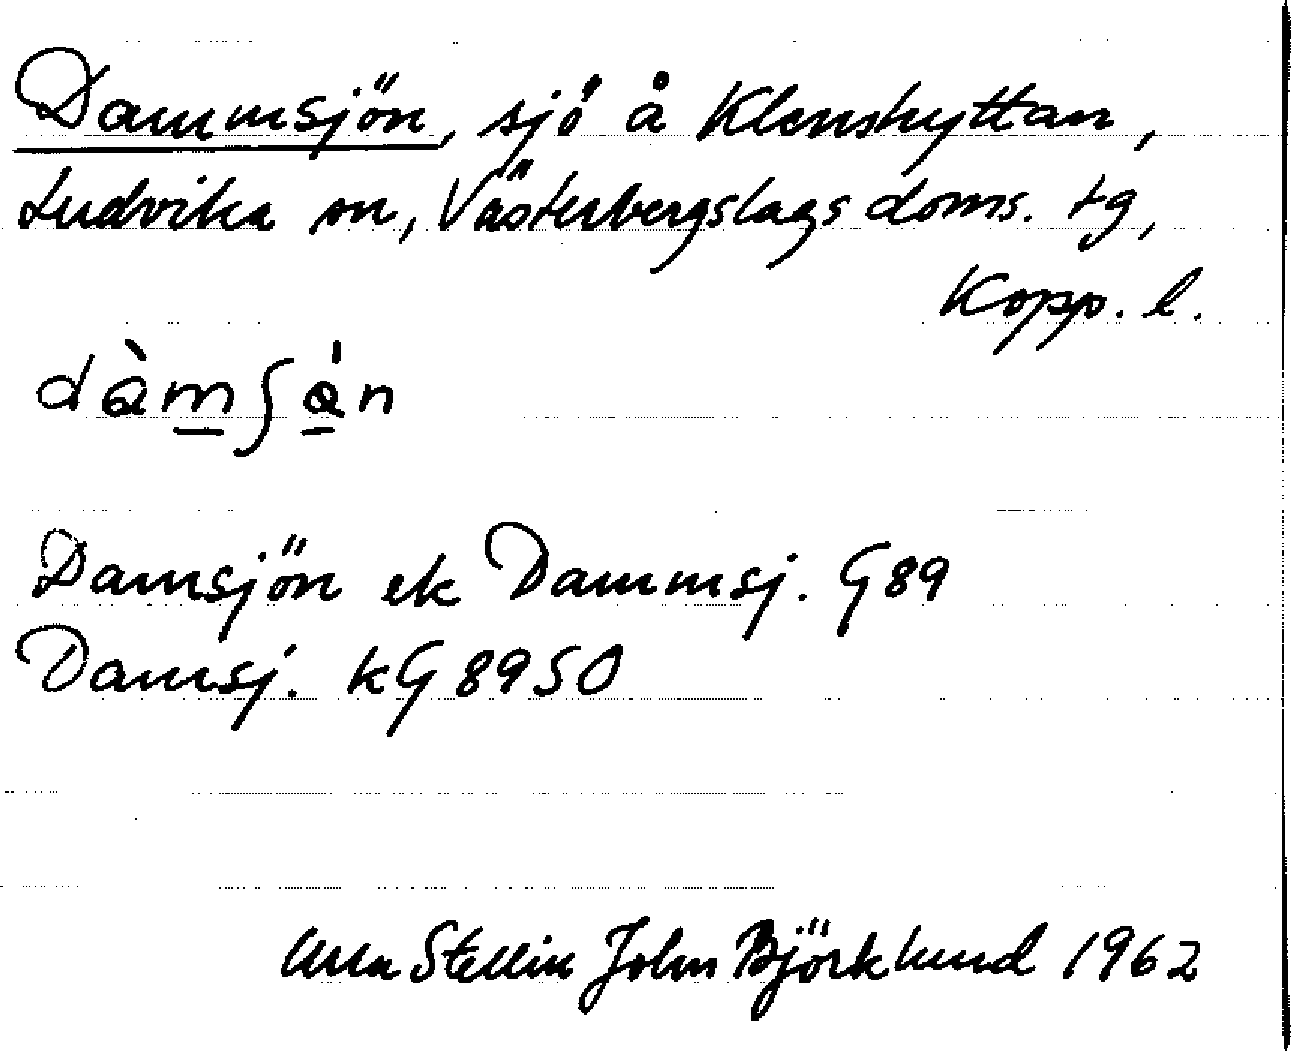 Dammsjön, sjö å Klenshyttan,
Ludvika sn, Västerbergslags doms. tg,
Kopp. l.
dàmʃán
Damsjön ek Dammsj. G89
Damsj. kG 8950
Ulla Stellin John Björklund 1962